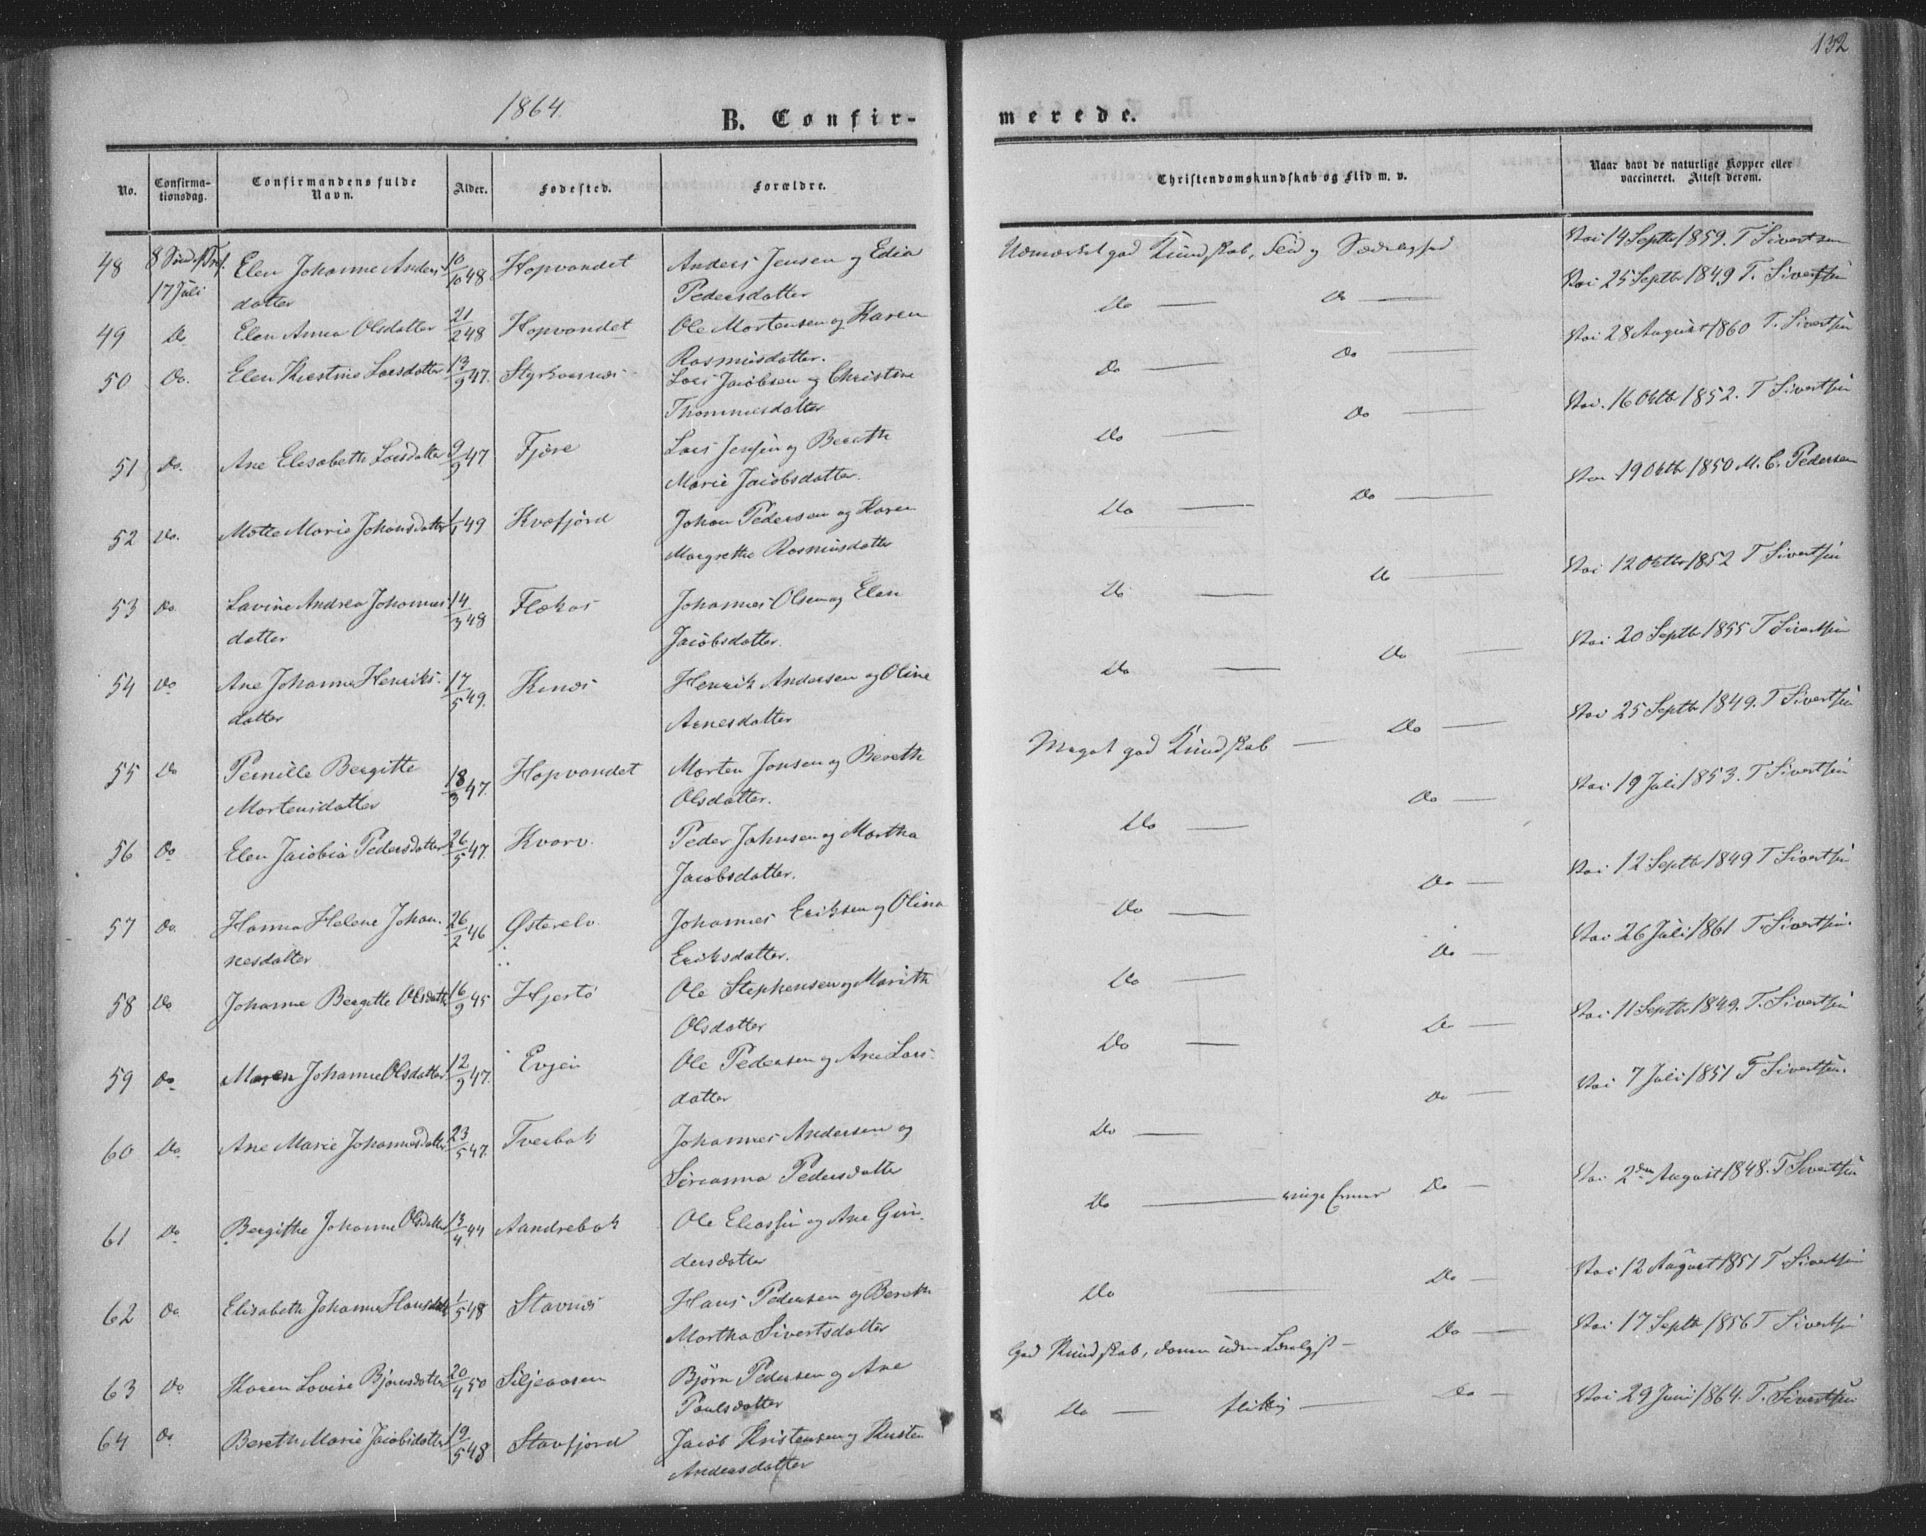 132
1864.
B. Confir-
merede.
No.
Confirma-
tionsdag.
Confirmandens fulde
Navn.
Alder.
Fødested.
Forældre.
Christendomskundskab og Flid m. v.
Naar havt de naturlige Kopper eller
vaccineret. Attest derom.
48 Elen Johanne Anders 10/10 48 Hopvandet Anders Jensen og Edia
17 Juli datter Pedersdatter
49 Do Elen Anna Olsdatter 21/2 48 Hopvandet Ole Mortensen og Karen
Rasmusdatter.
50 Do. Elen Kirstine Larsdatter 13/9 47. Lars Jacobsen og Christine
Thommesdatter
51 Do. Ane Elisabeth Larsdatter 9/9 47 Fjære Lars Jensen og Bereth
Marie Jacobsdatter.
52 Do. Mette Marie Johansdatter 1/1 49 Kvæfjord Johan Pedersen og Karen
Margrethe Rasmusdatter
53 Do Lavine Andrea Johannes 14/3 48 Flakas Johannes Olsen og Elen
datter Jacobsdatter.
54 Do Ane Johanne Henriks- 17/5 49. Kenæs Henrik Andersen og Oline
datter Arnesdatter
55 Do Pernille Bergitte 18/3 47. Hopvandet Morten Jonsen og Bereth
Mortensdatter Olsdatter.
56 Do Elen Jacobia Pedersdatter 26/5 47. Kvarv. Peder Johnsen og Martha
Jacobsdatter.
57 Do. Hanna Helene Johan- 26/2 46 Østerelv Johannes Eriksen og Olina
nesdatter Eriksdatter.
58 Do Johanne Bergitte Olsdatter 16/9 45 Hjertø Ole Stephensen og Marith
Olsdatter
59 Do Maren Johanne Olsdatter 12/9 47. Evjen Ole Pedersen og Ane Lars-
datter
60 Do. Ane Marie Johannesdatter 23/5 47. Tverbak Johannes Andersen og
Sirianna Pedersdatter
61 Do Bergithe Johanne Olsdatter 13/4 44 Aandrebak Ole Eliassen og Ane Gun-
dersdatter
62 Do Elisabeth Johanne Hansdatter 1/5 48 Stavnæs Hans Pedersen og Bereth
Martha Sivertsdatter
63 Do Karen Lovise Bjørnsdatter 20/4 50 Siljeaasen Bjørn Pedersen og Ane
Paulsdatter
64 Do Bereth Marie Jacobsdatter 19/5 48 Stavfjord Jacob Kristensen og Kirsten
Andersdatter
Udmærket god Kundskab, Flid og Sædelighed
Vac. 14 Septbr 1859. T Sivertsen
Do Do Vac. 25 Septbr 1849 T. Sivertsen
Vac. 28 August 1860 T. Sivertsen
Do Do
Vac. 16 Oktbr 1852. T Sivertsen
Do Do
Vac 19 Oktbr 1850 M. C. Pedersen
Do Do
Vac 12 Oktbr 1852 T Sivertsen
Do Do
Vac 20 Septbr 1855 T Sivertsen
Do Do
Vac 25 Septbr 1849. T Sivertsen
Meget god Kundskab Do
Vac 19 Juli 1853. T Sivertsen
Do Do
Vac 12 Septbr 1849 T Sivertsen
Do Do
Vac 26 Juli 1861 T. Sivertsen.
Do Do
Vac 11 Septbr 1849. T. Sivertsen
Do Do
Vac 7 Juli 1851 T Sivertsen.
Do Do
Vac 2den August 1848. T Sivertsen
Do ringe Evner Do
Vac 12 August 1851 T Sivertsen
Do Do
Vac 17 Septbr 1856 T Sivertsen
God Kundskab, Do
Vac 29 Juni 1864. T. Sivertsen
Do flittig Do